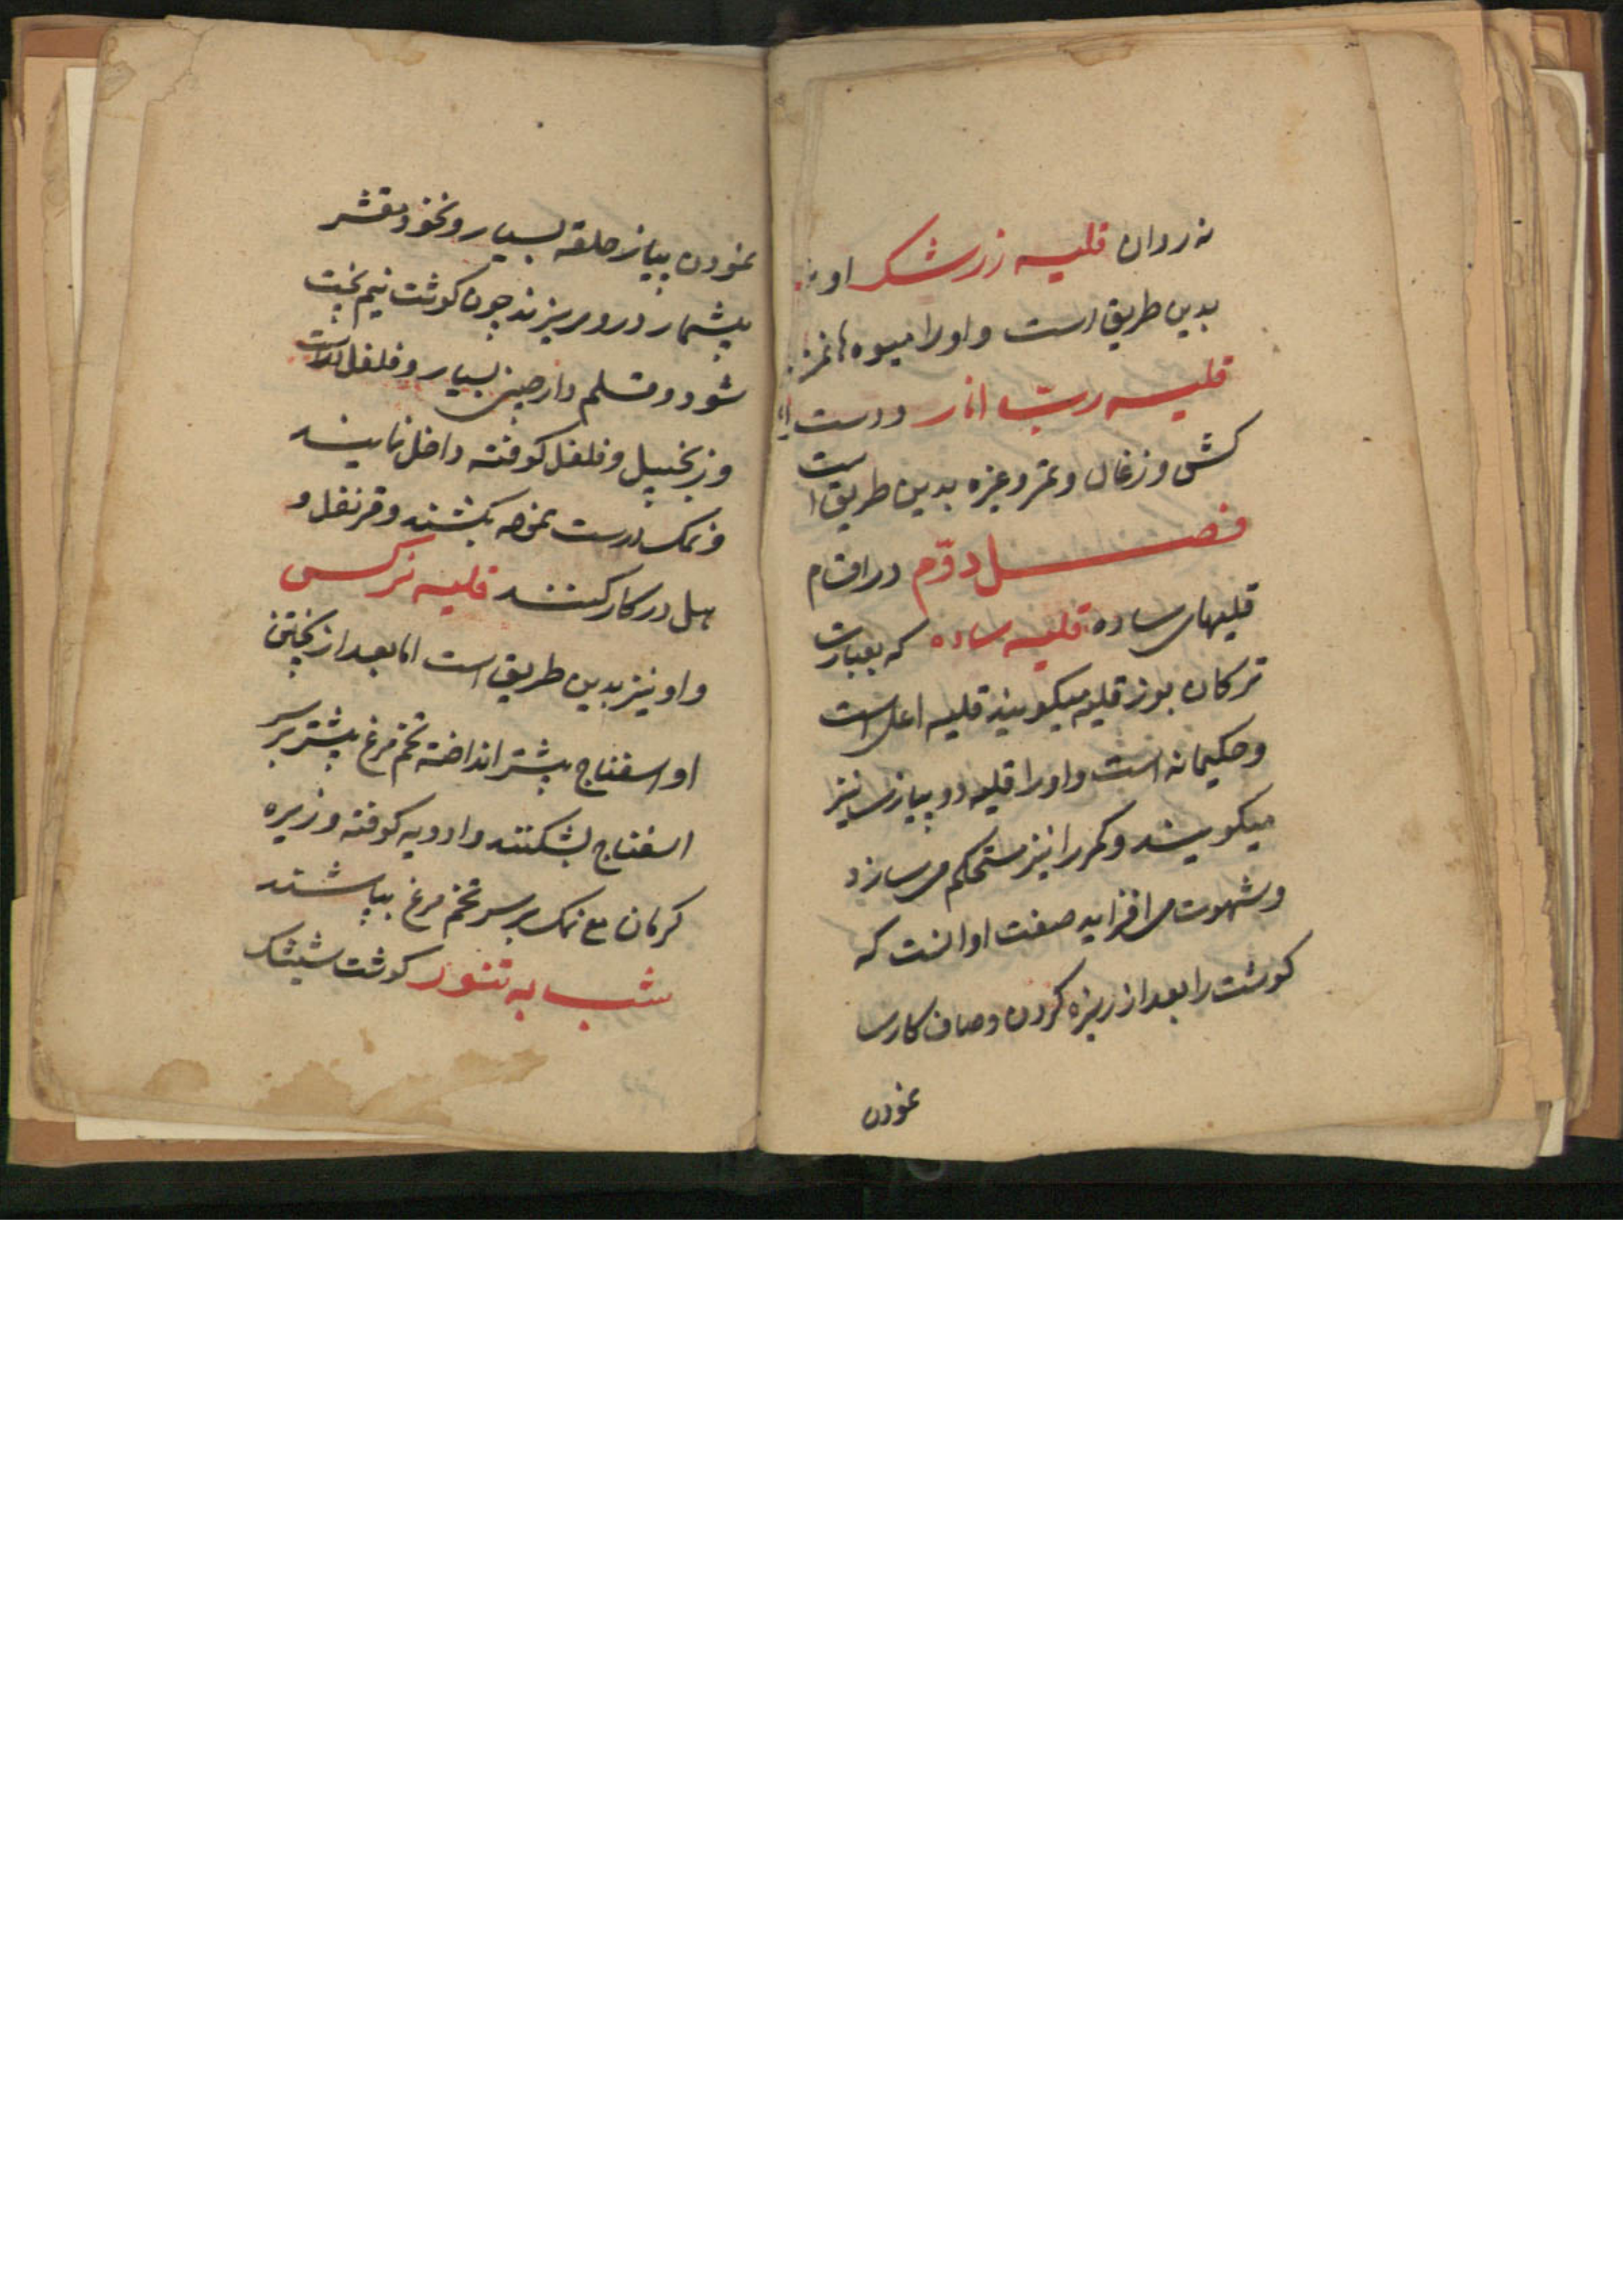 نه روان قلیه زرشک او
بدین طریق است و او را میوه ها
قلیه ربّ انار درست
کش و زغال و تمر و غیره بدین طریق است
فصل دوّم در اقسام
قلیهای ساده قلیه ساده که بعبارت
ترکان بوز قلیه میکویند قلیه اعلی است
و حکیمانه است و او را قلیه دو پیازی نیز
میکویند و کمر را نیز مستحکم می سازد
و شهوت می افزاید صفت او انست که
کوشت را بعد از ریزه کردن و صاف کاری
نمودن
نمودن پیاز حلقه بسیار و نخود مقشر
بیشمار در و می ریزند چون کوشت نیم پخت
شود و قلم دارچینی بسیار و فلفل
و زنجبیل و فلفل کوفته داخل نمایند
و نمک درست نموده بکشند و قرنفل و
هل در کار کنند قلیه نرکسی
و او نیز بدین طریق است اما بعد از پختن
او اسفناج بیشتر انداخته تخم مرغ بیشتر بر سر
اسفناج بشکنند و ادویه کوفته و زیره
کرمان مع نمک بر سر تخم مرغ بپاشند
شب به تنور کوشت شیشک